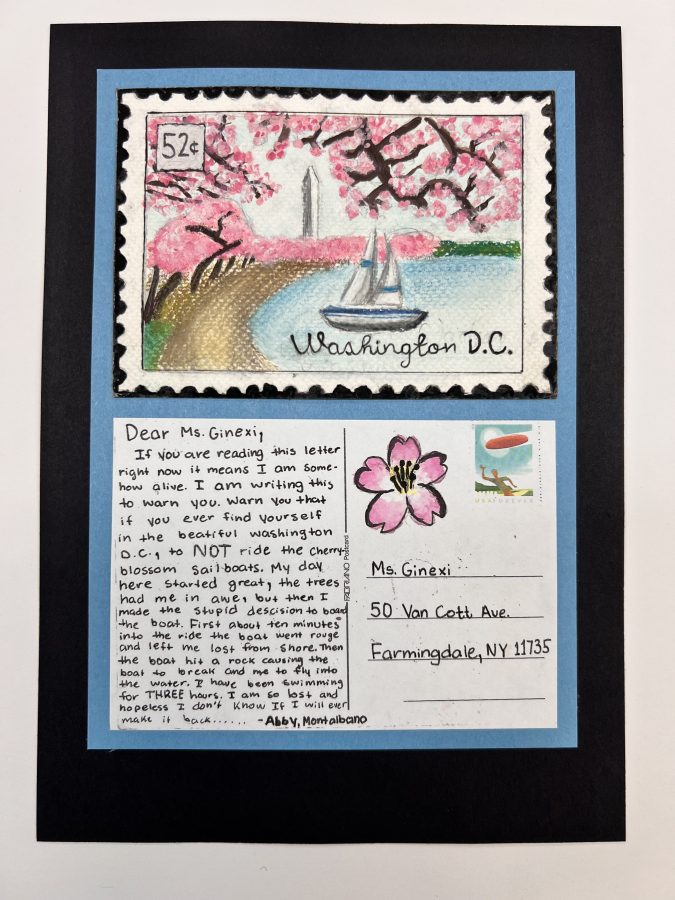 52¢
Washington D.C.
Dear Ms. Ginexi,
If you are reading this letter
right now it means I am some-
how alive. I am writing this
to warn you. Warn you that
if you ever find yourself
in the beatiful washington
D.C., to NOT ride the cherry-
blossom Sailboats. My day
here started great, the trees
had me in awe, but then I
made the stupid descision to board
the boat. First about ten minutes
into the ride the boat went rouge
and left me lost from shore. Then
the boat hit a rock causing the
boat to break and me to fly into
the water. I have been swimming
for THREE hours. I am so lost and
hopeless I don't know If I will ever
make it back......
-Abby, Montalbano
FABRIANO Postcard
USA FOREVER
Ms. Ginexi
50 Van Cott Ave.
Farmingdale, NY 11735